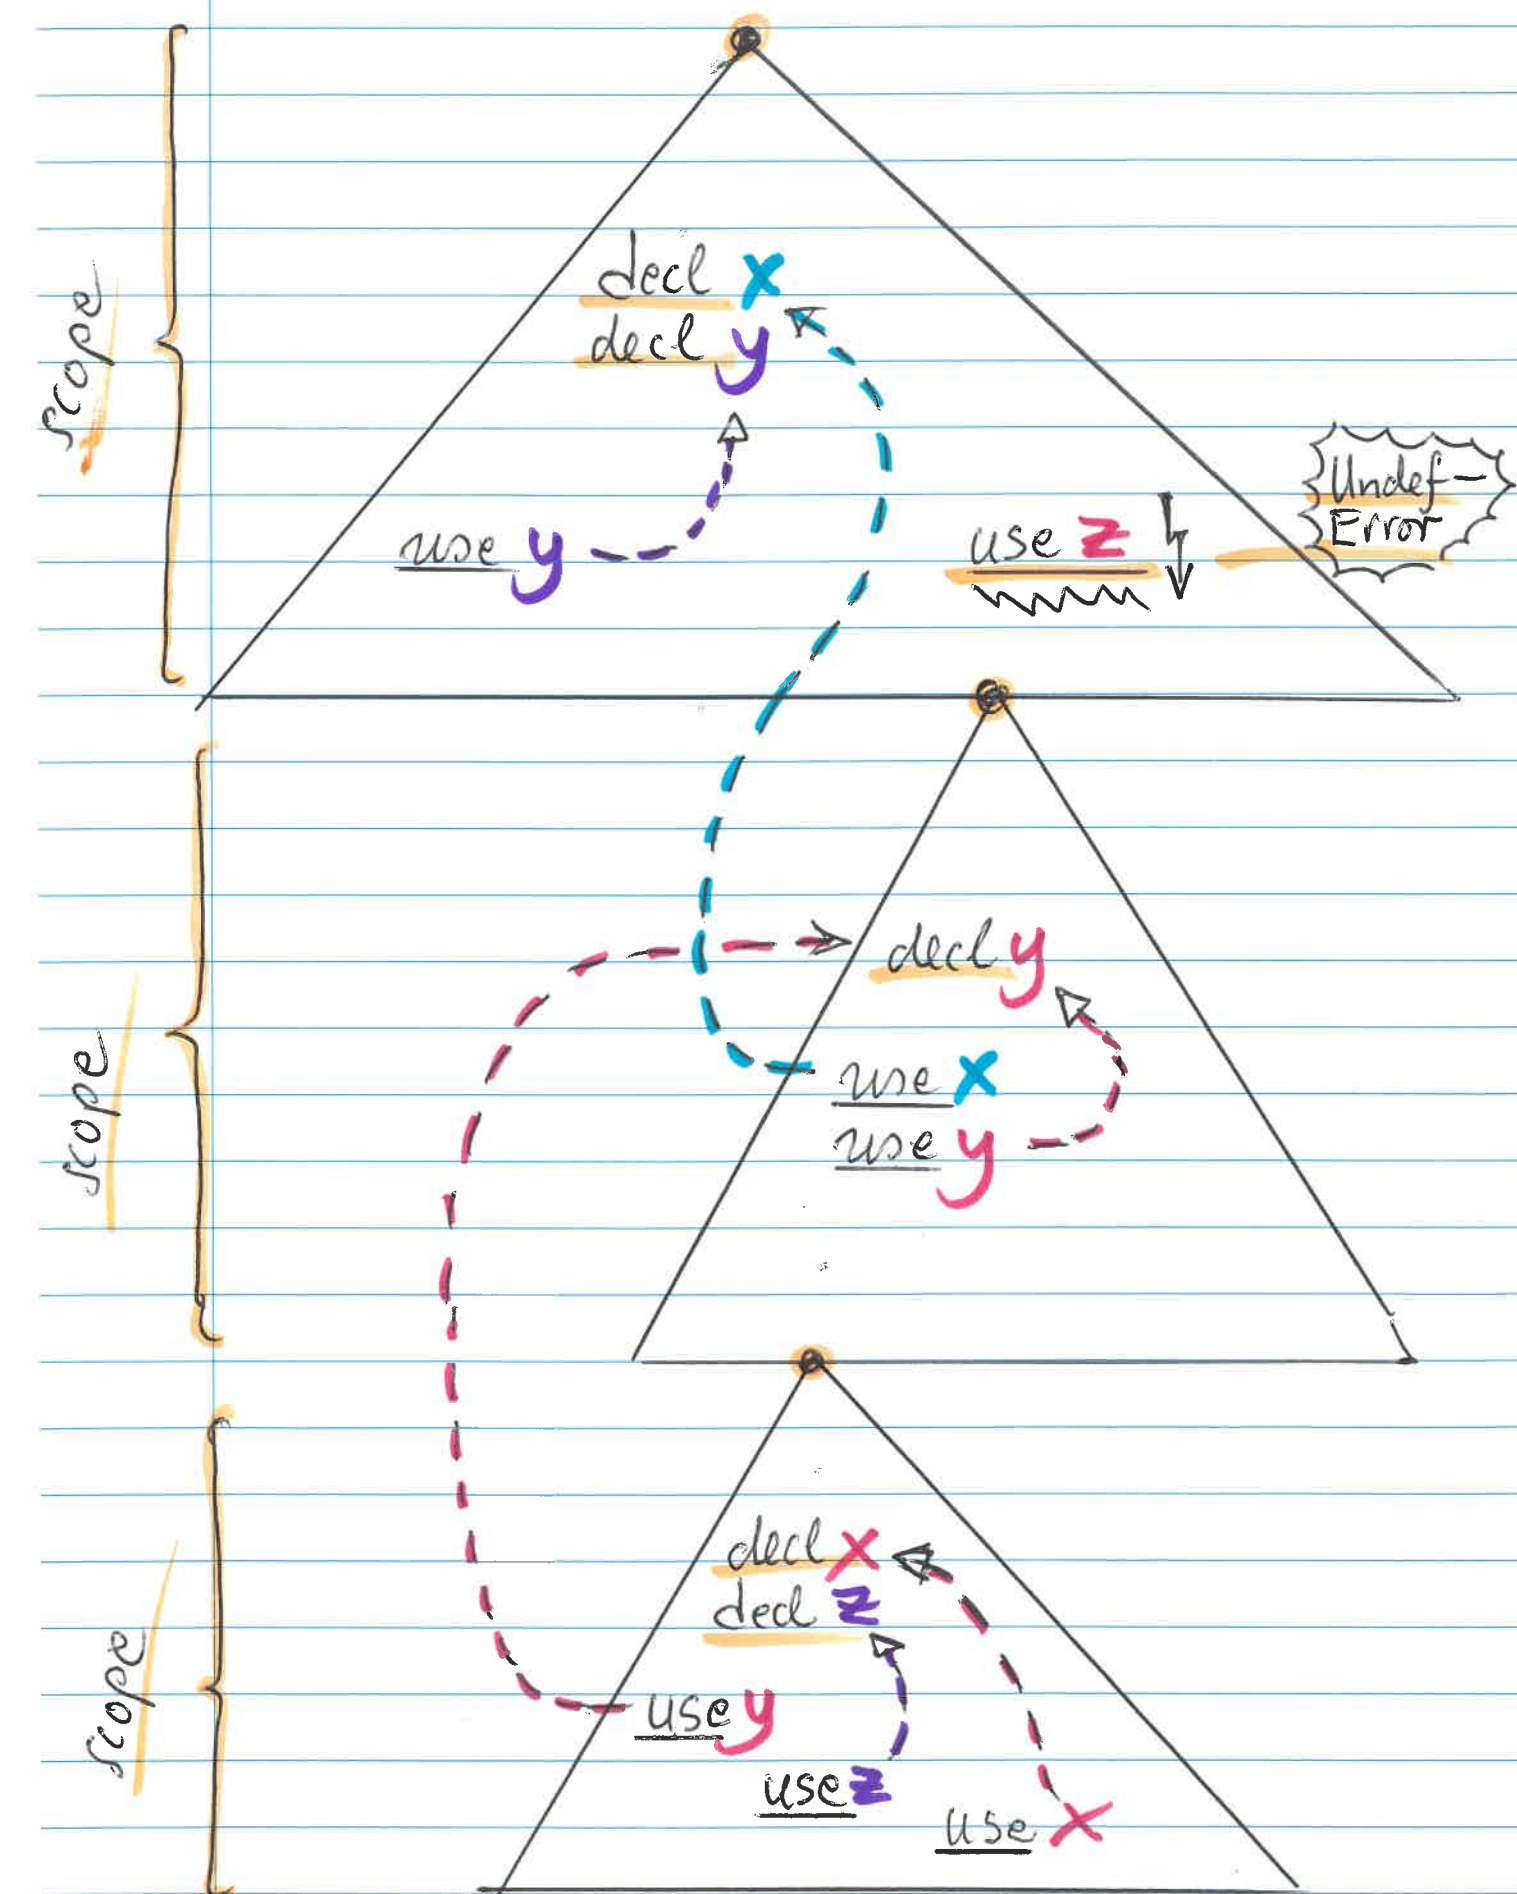 scope
decl x
decl y
use y
use z
Undef-
Error
scope
decl y
use x
use y
scope
decl x
decl z
use y
use z
use x